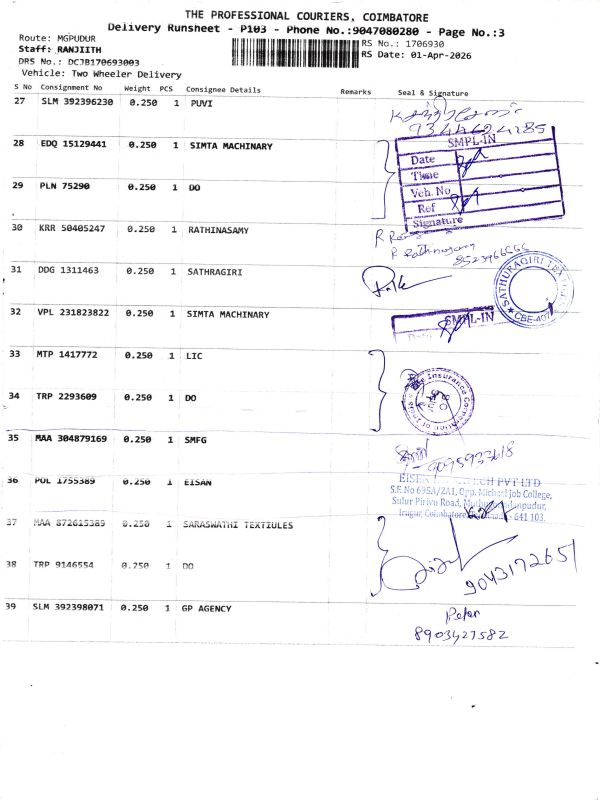 THE PROFESSIONAL COURIERS, COIMBATORE
Delivery Runsheet - P103 - Phone No.:9047080280 - Page No.:3
Route: MGPUDUR
RS No.: 1706930
Staff: RANJIITH
RS Date: 01-Apr-2026
DRS No.: DCJB170693003
Vehicle: Two Wheeler Delivery
S No Consignment No Weight PCS Consignee Details Remarks Seal & Signature
27 SLM 392396230 0.250 1 PUVI
9344624285
28 EDQ 15129441 0.250 1 SIMTA MACHINARY
SMPL-IN
Date
Time
Veh. No
Ref
Signature
29 PLN 75290 0.250 1 DO
30 KRR 50405247 0.250 1 RATHINASAMY
R Rathnasamy
8523966566
31 DDG 1311463 0.250 1 SATHRAGIRI
SATHURAGIRI
CBE-407
32 VPL 231823822 0.250 1 SIMTA MACHINARY
SMPL-IN
Date
33 MTP 1417772 0.250 1 LIC
34 TRP 2293609 0.250 1 DO
Insurance Corporation of India
35 MAA 304879169 0.250 1 SMFG
9095933618
36 POL 1755389 0.250 1 EISAN
TECH PVT LTD
S.F. No 695A/2A1, Opp. Michael Job College,
Sulur Pirivu Road,
Irugur, Coimbatore, - 641 103.
37 MAA 872615389 0.250 1 SARASWATHI TEXTIULES
38 TRP 9146554 0.250 1 DO
9043172651
39 SLM 392398071 0.250 1 GP AGENCY
Peter
8903427582